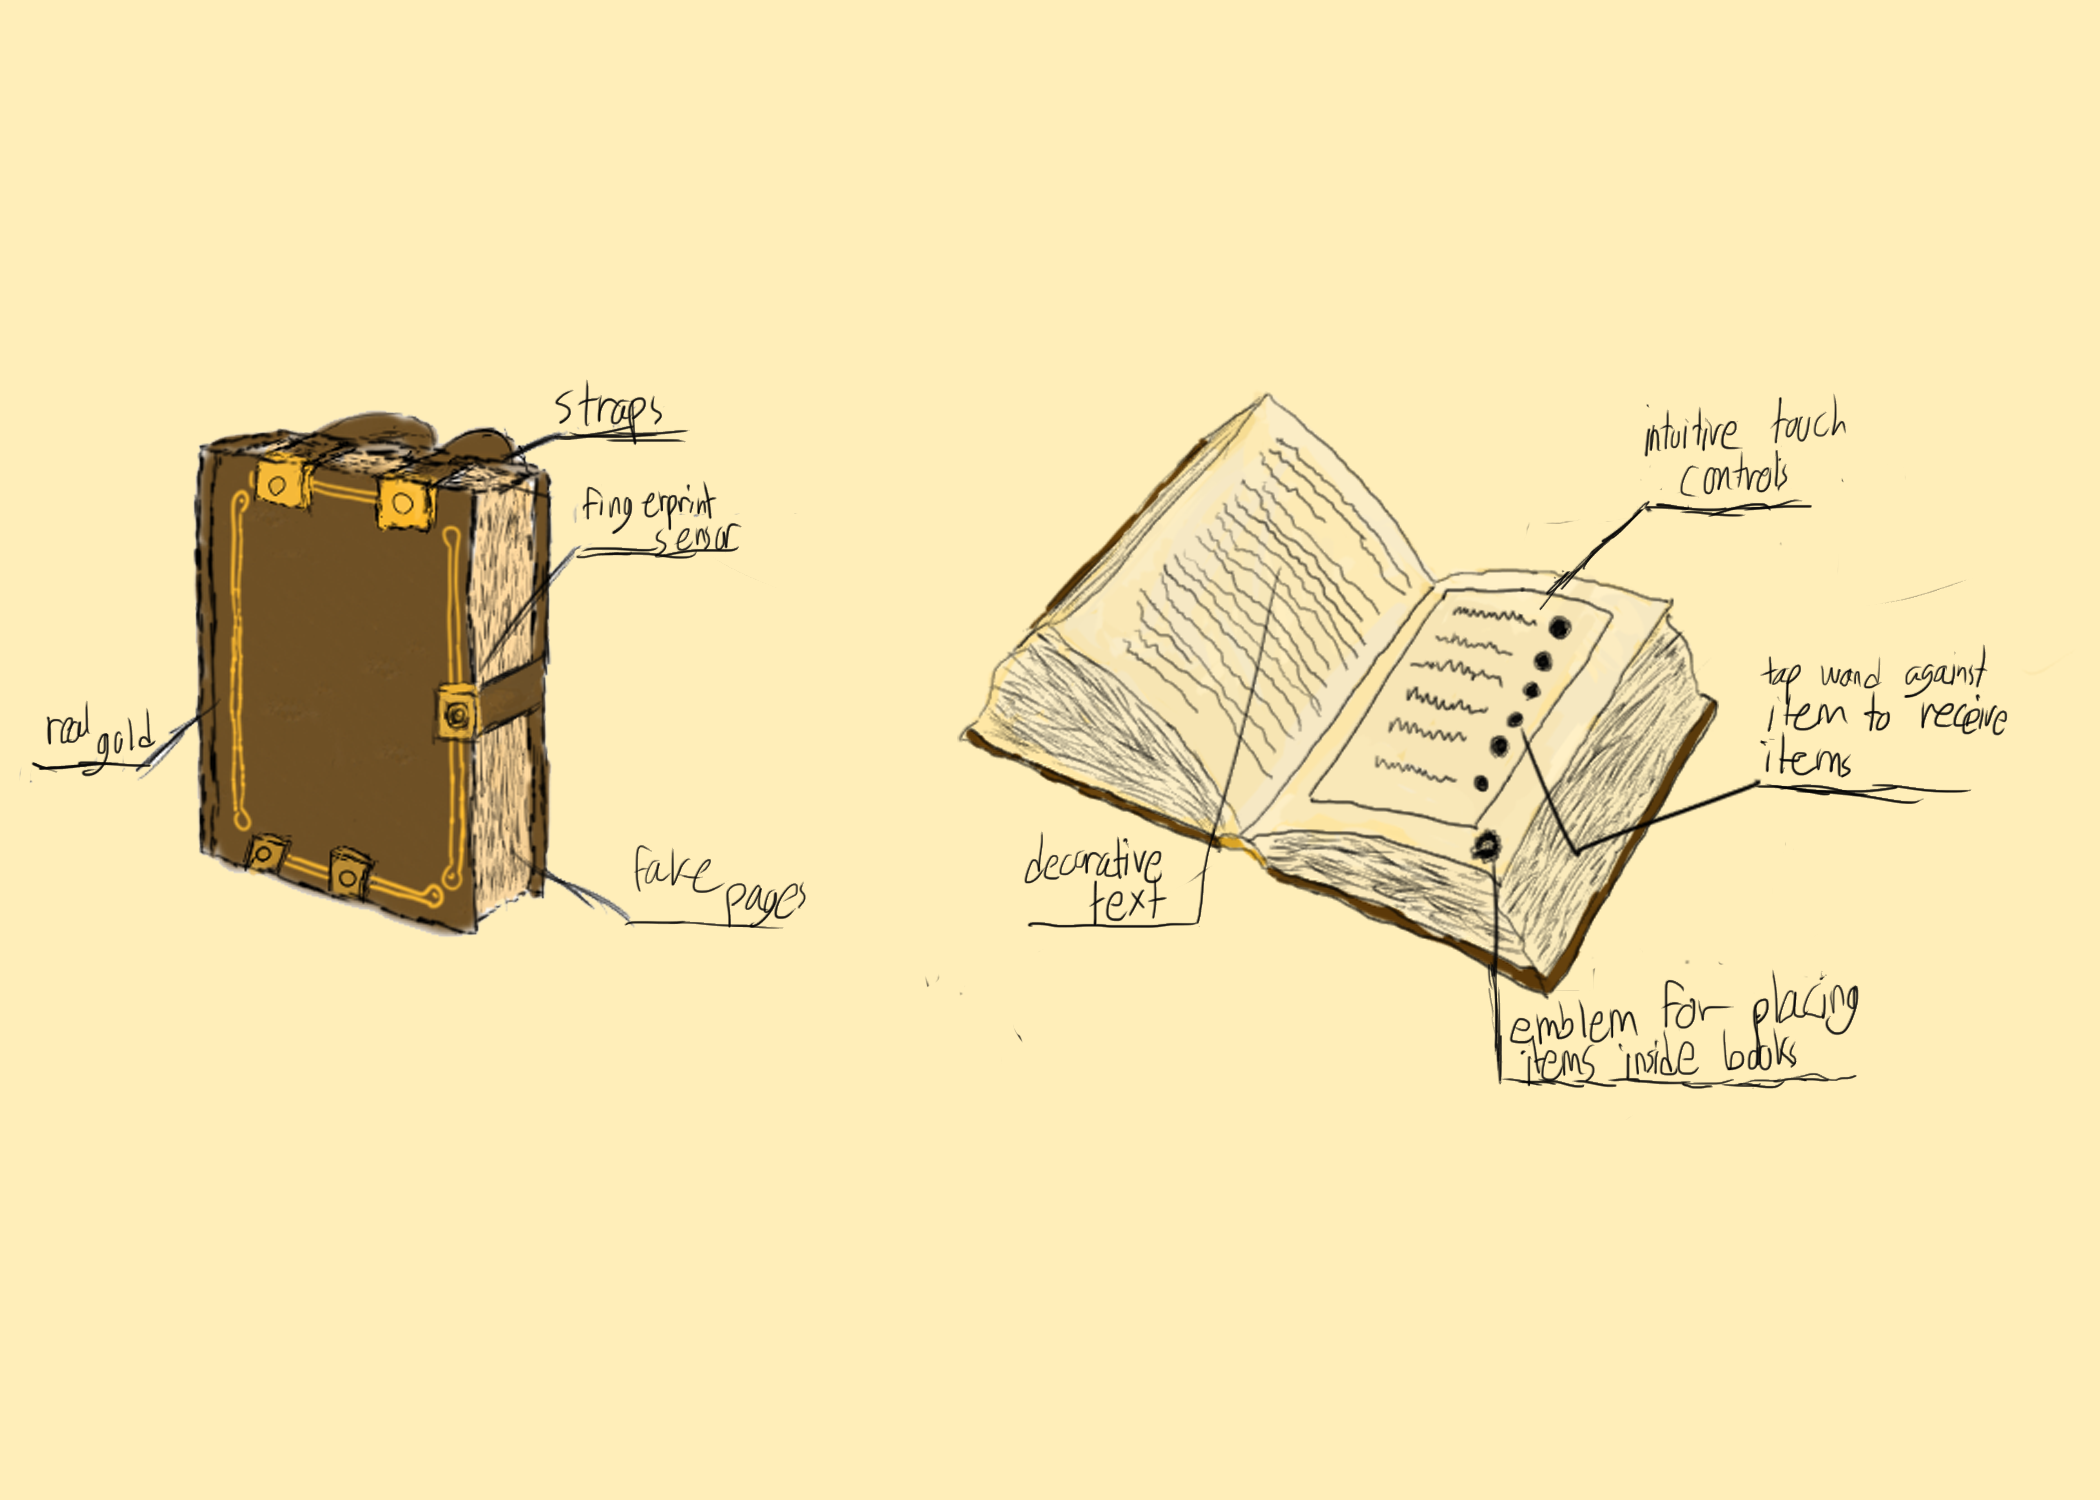 straps
fingerprint
sensor
real
gold
fake
pages
intuitive touch
controls
tap wand against
item to receive
items
decorative
text
emblem for placing
items inside books